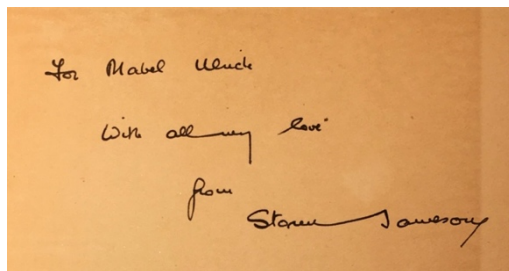 For Mabel Ulrich
With all my love
from
Storm Jameson